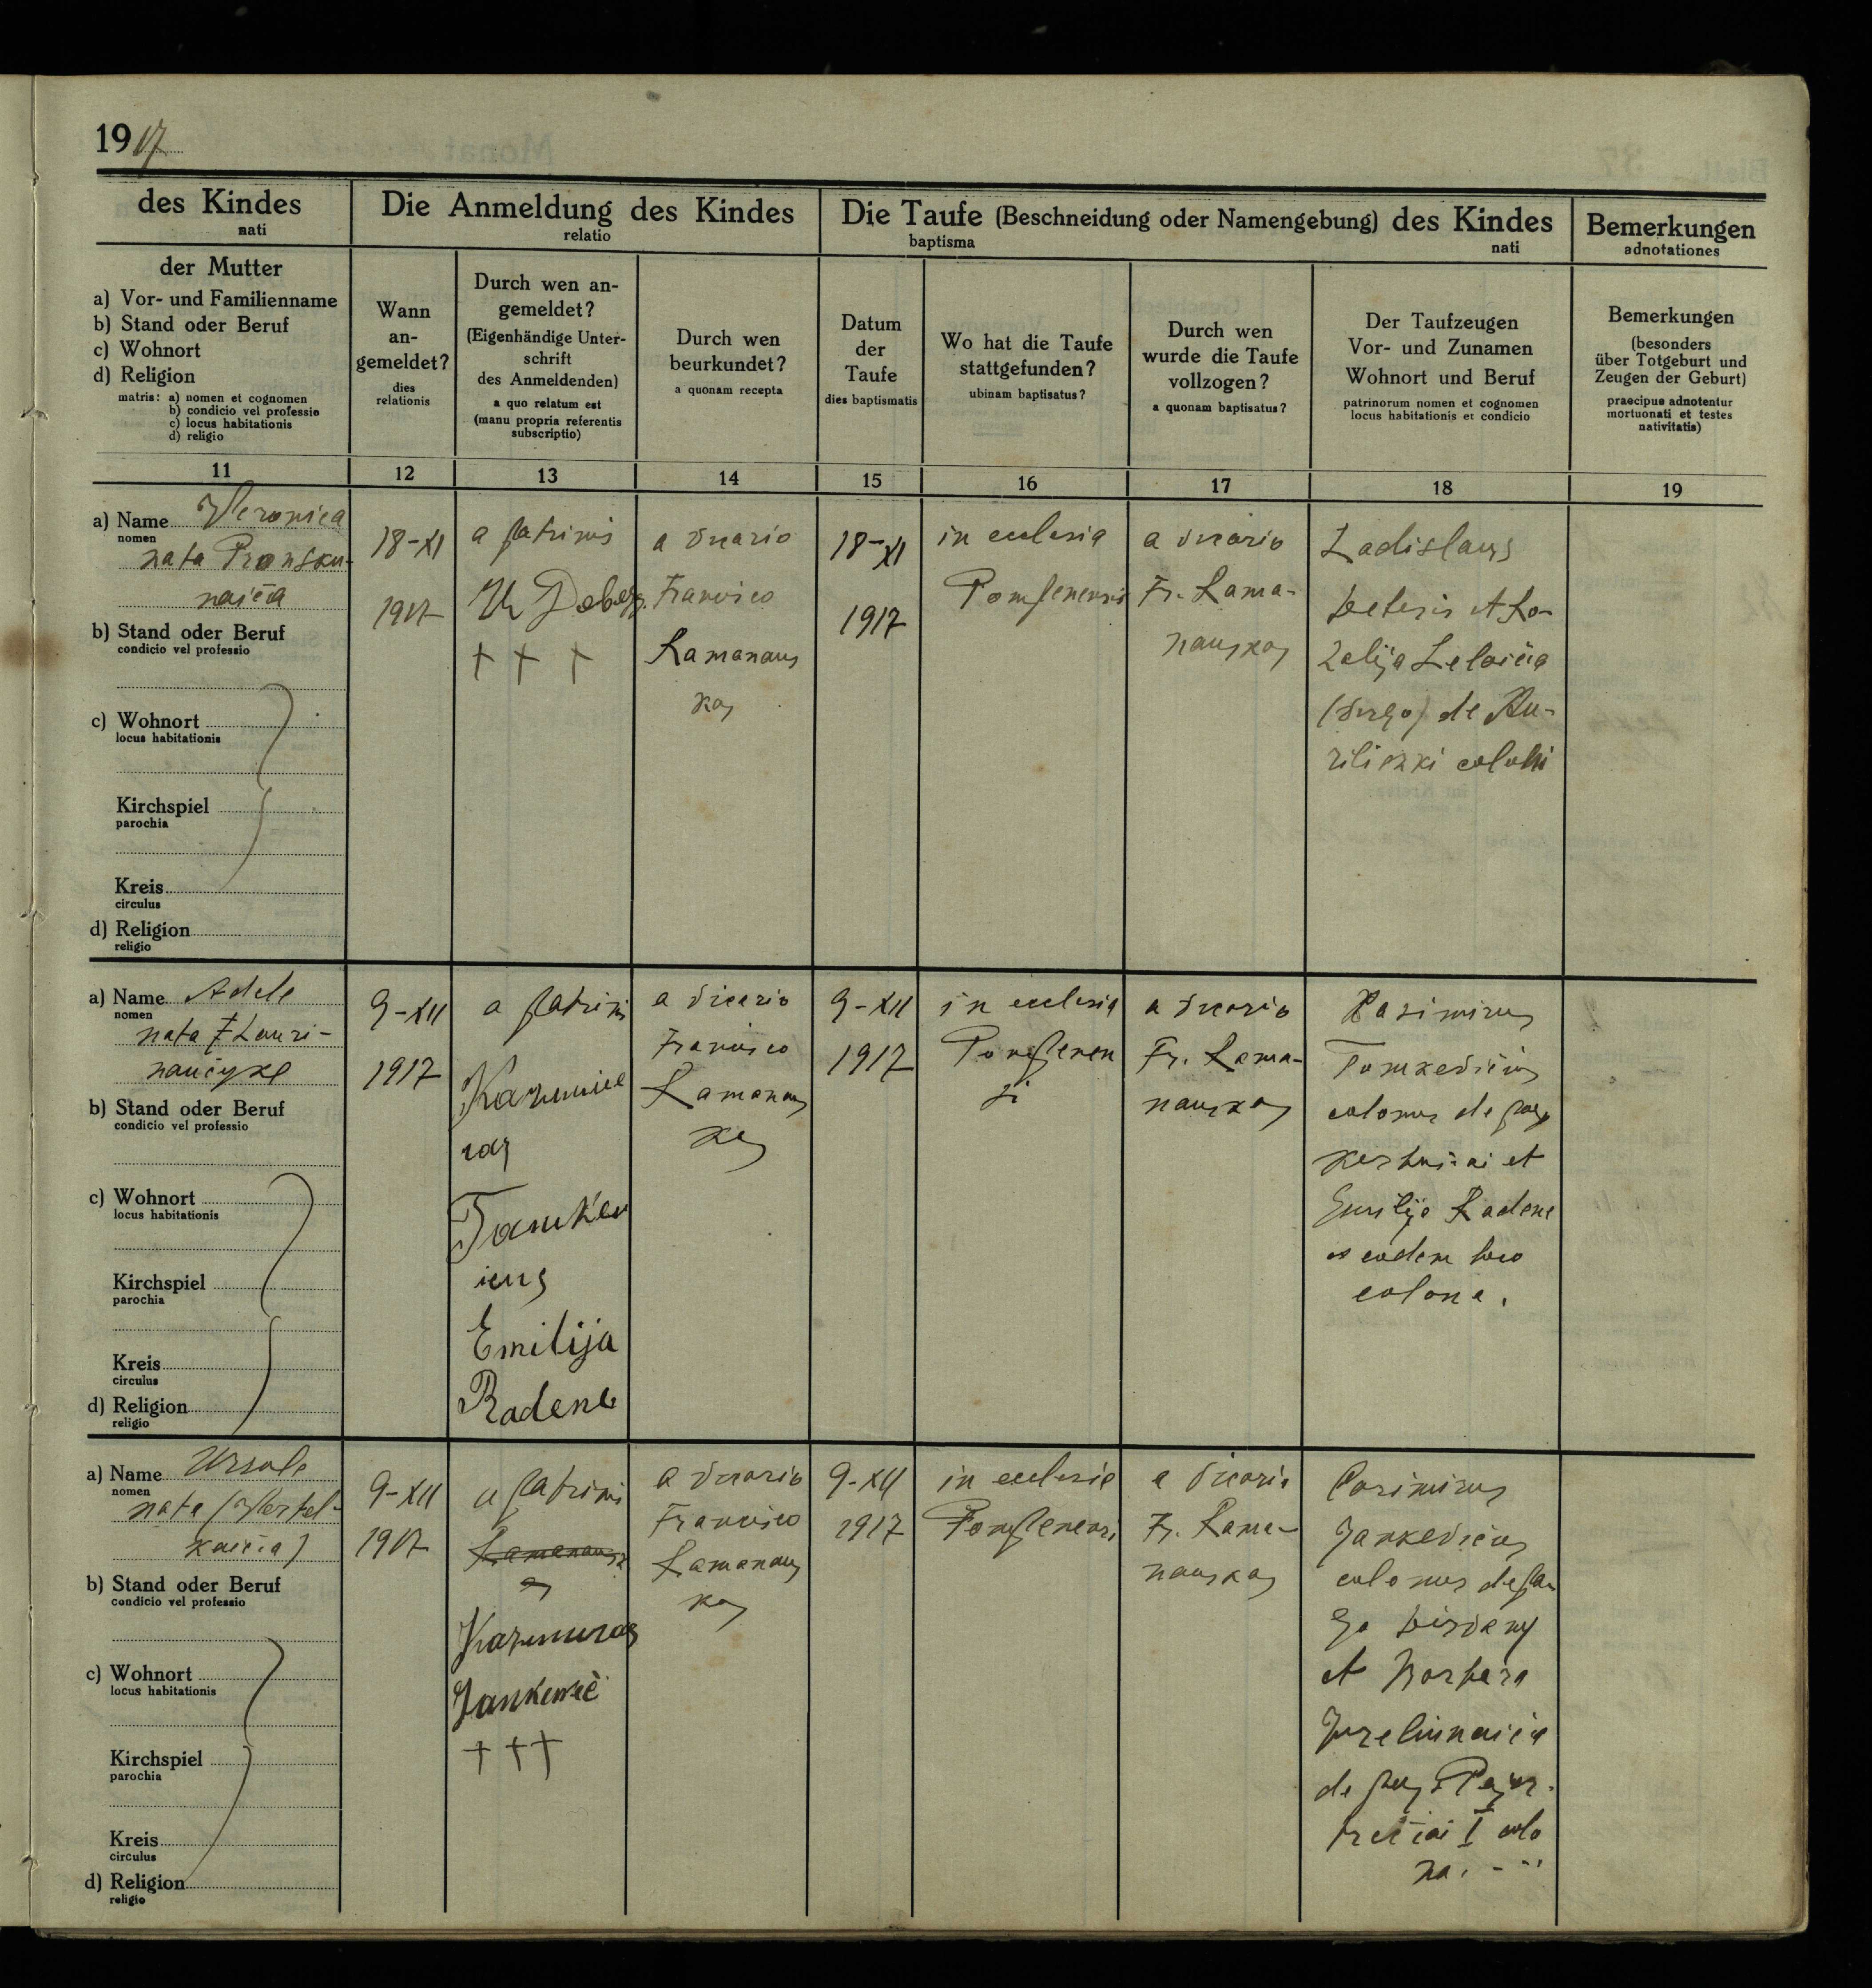 1917
des Kindes
nati
Die Anmeldung des Kindes
relatio
Die Taufe (Beschneidung oder Namengebung) des Kindes
baptisma nati
Bemerkungen
adnotationes
der Mutter
a) Vor- und Familienname
b) Stand oder Beruf
c) Wohnort
d) Religion
matris: a) nomen et cognomen
b) condicio vel professio
c) locus habitationis
d) religio
Wann
an-
gemeldet?
dies
relationis
Durch wen an-
gemeldet?
(Eigenhändige Unter-
schrift
des Anmeldenden)
a quo relatum est
(manu propria referentis
subscriptio)
Durch wen
beurkundet?
a quonam recepta
Datum
der
Taufe
dies baptismatis
Wo hat die Taufe
stattgefunden?
ubinam baptisatus?
Durch wen
wurde die Taufe
vollzogen?
a quonam baptisatus?
Der Taufzeugen
Vor- und Zunamen
Wohnort und Beruf
patrinorum nomen et cognomen
locus habitationis et condicio
Bemerkungen
(besonders
über Totgeburt und
Zeugen der Geburt)
praecipue adnotentur
mortuonati et testes
nativitatis)
11 12 13 14 15 16 17 18 19
a) Name Veronica
nomen
nata
b) Stand oder Beruf
condicio vel professio
c) Wohnort
locus habitationis
Kirchspiel
parochia
Kreis
circulus
d) Religion
religio
18-XI
1917
a patrinis
† † †
a vicario
Francisco
Ramanaus
kas
18-XI
1917
in ecclesia
a vicario
Fr. Rama-
nauskas
Ladislaus
a) Name Adele
nomen
nata
b) Stand oder Beruf
condicio vel professio
c) Wohnort
locus habitationis
Kirchspiel
parochia
Kreis
circulus
d) Religion
religio
9-XII
1917
a patrinis
Emilija
Radene
a vicario
Francisco
Ramanaus
kas
9-XII
1917
in ecclesia
a vicario
Fr. Rama-
nauskas
Kasimirus
colonus de
et
Emilija Radene
eodem loco
colona.
a) Name Ursule
nomen
nata
b) Stand oder Beruf
condicio vel professio
c) Wohnort
locus habitationis
Kirchspiel
parochia
Kreis
circulus
d) Religion
religio
9-XII
1917
a patrinis
† † †
a vicario
Francisco
Ramanaus
kas
9-XII
1917
in ecclesia
a vicario
Fr. Rama-
nauskas
Casimirus
Jankevičius
colonus
et Barbara
de
I colo
na.